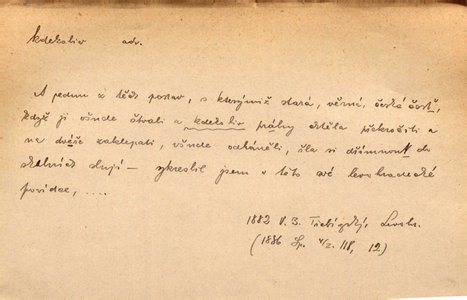 kdekoliv adv.
A jednu z těch postav, s kterýmiž stará, věrná, česká čest,
když ji všude štvali a kdekoliv práhy chtěla překročiti a
na dvéře zaklepati, všude odháněli, šla si dřímnout do
skalních slují — vykreslil jsem v této své levohradecké
povídce, ....
1882 V. B. Třebízský, Levoh.
(1886 Sp. V/2. 118, 12.)